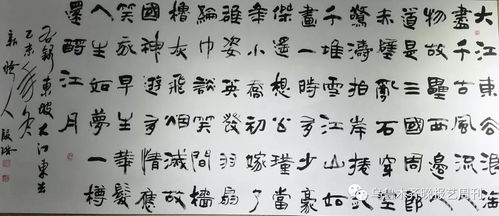 大江東去浪淘
盡千古風流人
物故壘西邊人
道是三國周郎
赤壁亂石穿空
驚濤拍岸捲起
千堆雪江山如
畫一時多少豪
傑遙想公瑾當
年小喬初嫁了
雄姿英發羽扇
綸巾談笑間檣
櫓灰飛煙滅故
國神遊多情應
笑我早生華髮
人生如夢一樽
還酹江月
右錄東坡大江東去
乙未年冬
乌鲁木齐晚报艺周刊